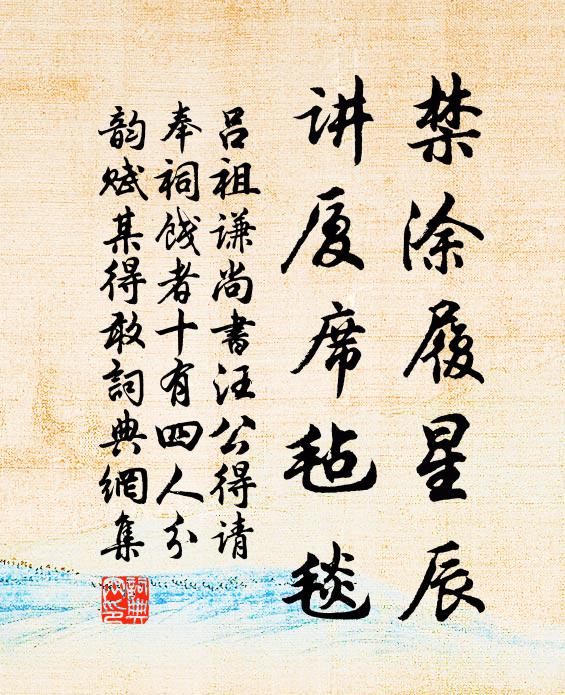 禁涂履星辰
讲厦席毡毯
吕祖谦尚书汪公得请
奉祠饯者十有四人分
韵赋某得敢词典網集